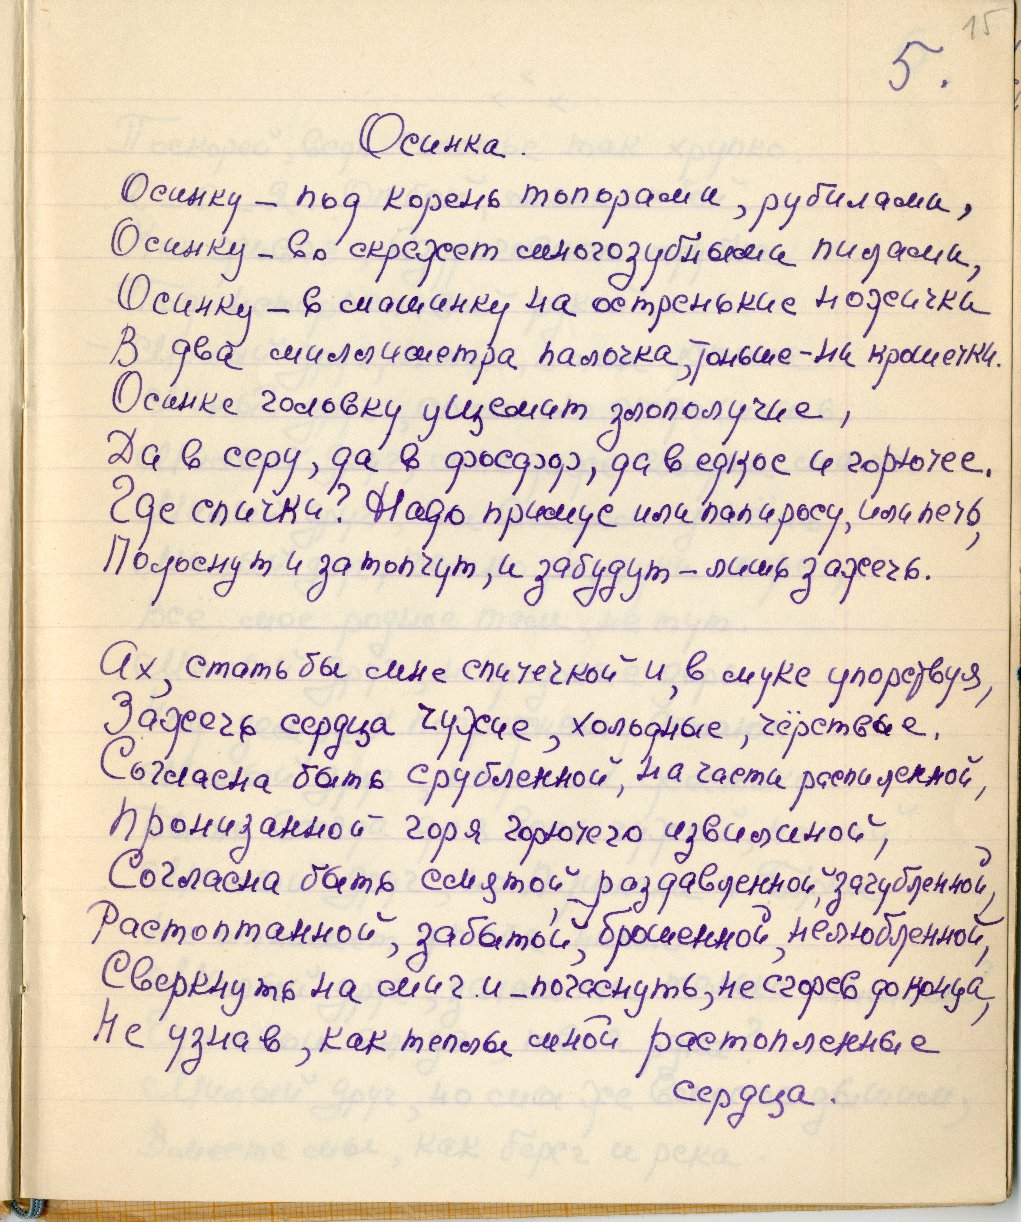 15
5.
Осинка.
Осинку – под корень топорами, рубилами,
Осинку – во скрежет многозубными пилами,
Осинку – в машинку на остренькие ножички
В два миллиметра палочка, тоньше – ни крошечки.
Осинке головку ущемит злополучие,
Да в серу, да в фосфор, да в едкое и горючее.
Где спички? Надо примус или папиросу, или печь,
Полоснут и затопчут, и забудут – лишь зажечь.
Ах, стать бы мне спичечкой и, в муке упорствуя,
Зажечь сердца чужие, холодные, чёрствые.
Согласна быть срубленной, на части распиленной,
Пронизанной горя горючего извилиной,
Согласна быть смятой, раздавленной, загубленной,
Растоптанной, забытой, брошенной, нелюбленной,
Сверкнуть на миг и – погаснуть, не сгорев до конца,
Не узнав, как теплы мной растопленные
сердца.